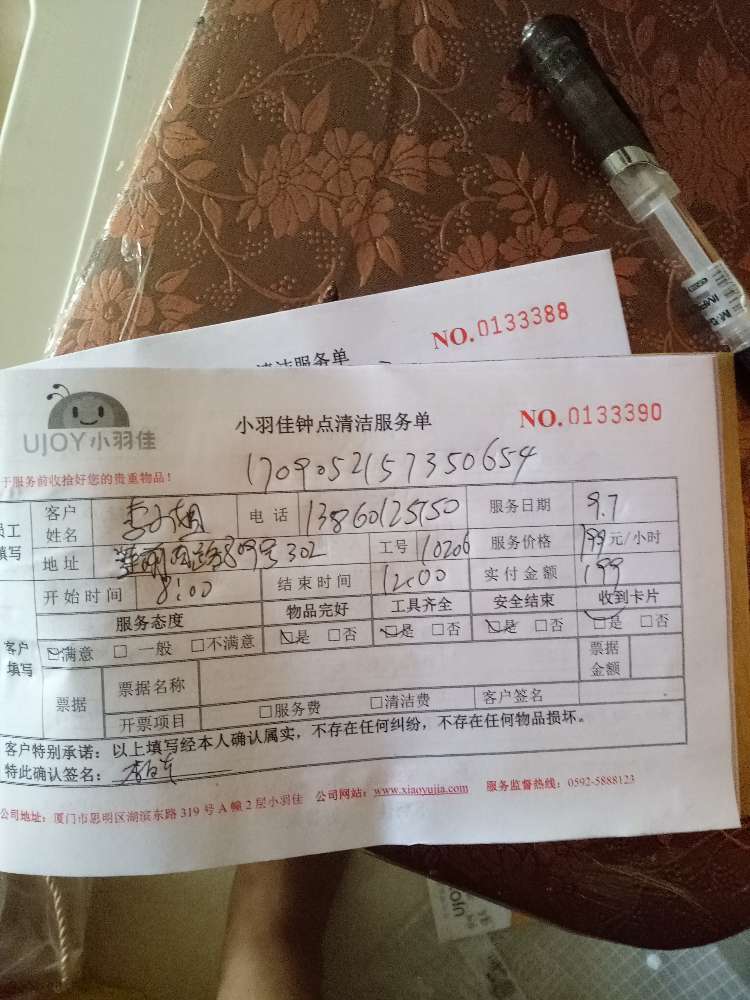 清洁服务单 NO.0133388
UJOY小羽佳 小羽佳钟点清洁服务单 NO.0133390
于服务前收拾好您的贵重物品！
1709052157350654
员工填写 客户姓名 李小姐 电话 13860125750 服务日期 9.7
地址 809号302 工号 10206 服务价格 199元/小时
开始时间 8:00 结束时间 12:00 实付金额 199
客户填写 服务态度 物品完好 工具齐全 安全结束 收到卡片
☑满意 □一般 □不满意 ☑是 □否 ☑是 □否 ☑是 □否 ☑是 □否
票据 票据名称 票据金额
开票项目 □服务费 □清洁费 客户签名
客户特别承诺：以上填写经本人确认属实，不存在任何纠纷，不存在任何物品损坏。
特此确认签名：
公司地址：厦门市思明区湖滨东路319号A幢2层小羽佳 公司网站：www.xiaoyujia.com 服务监督热线：0592-5888123
UJOY